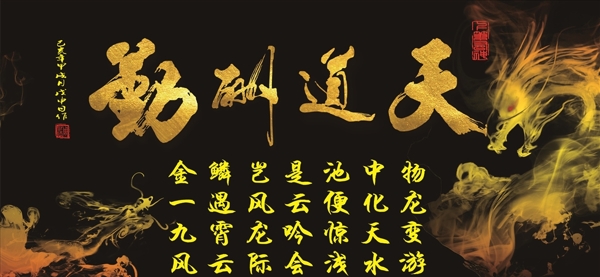 天道酬勤
己亥年甲戌月戊申日作
金鳞岂是池中物
一遇风云便化龙
九霄龙吟惊天变
风云际会浅水游